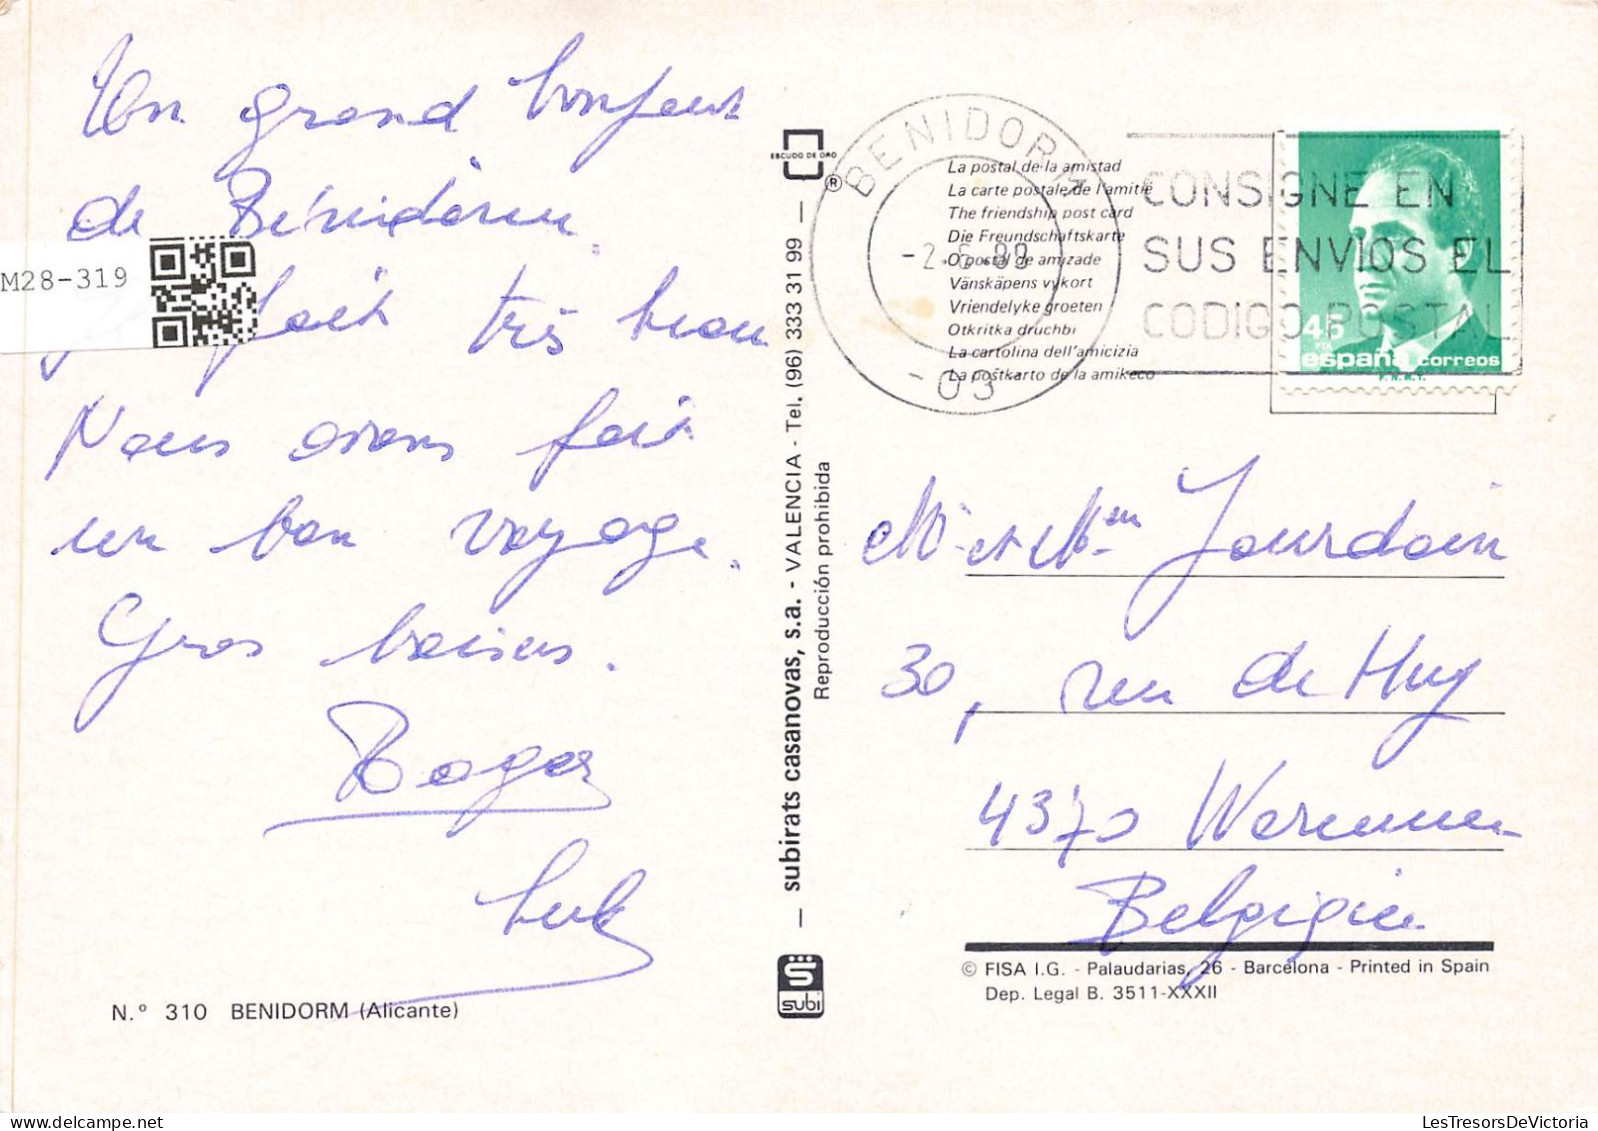 Un grand bonjour
de Bénidorm.
fait très beau
Nous avons fait
un bon voyage.
Gros baisers.
Roger
N.º 310 BENIDORM (Alicante)
M28-319
ESCUDO DE ORO
®
— subirats casanovas, s.a. - VALENCIA - Tel. (96) 333 31 99 —
Reproducción prohibida
subi
BENIDORM
-03-
La postal de la amistad
La carte postale de l'amitié
The friendship post card
Die Freundschaftskarte
O postal de amizade
Vänskäpens vykort
Vriendelyke groeten
Otkritka druchbi
La cartolina dell'amicizia
La postkarto de la amikeco
CONSIGNE EN
SUS ENVIOS EL
CODIGO POSTAL
45
PTA
españa correos
F.N.M.T.
Mr et Mme Jourdain
30, rue de Huy
4370 Waremme
Belgigie
© FISA I.G. - Palaudarias, 26 - Barcelona - Printed in Spain
Dep. Legal B. 3511-XXXII
LesTresorsDeVictoria